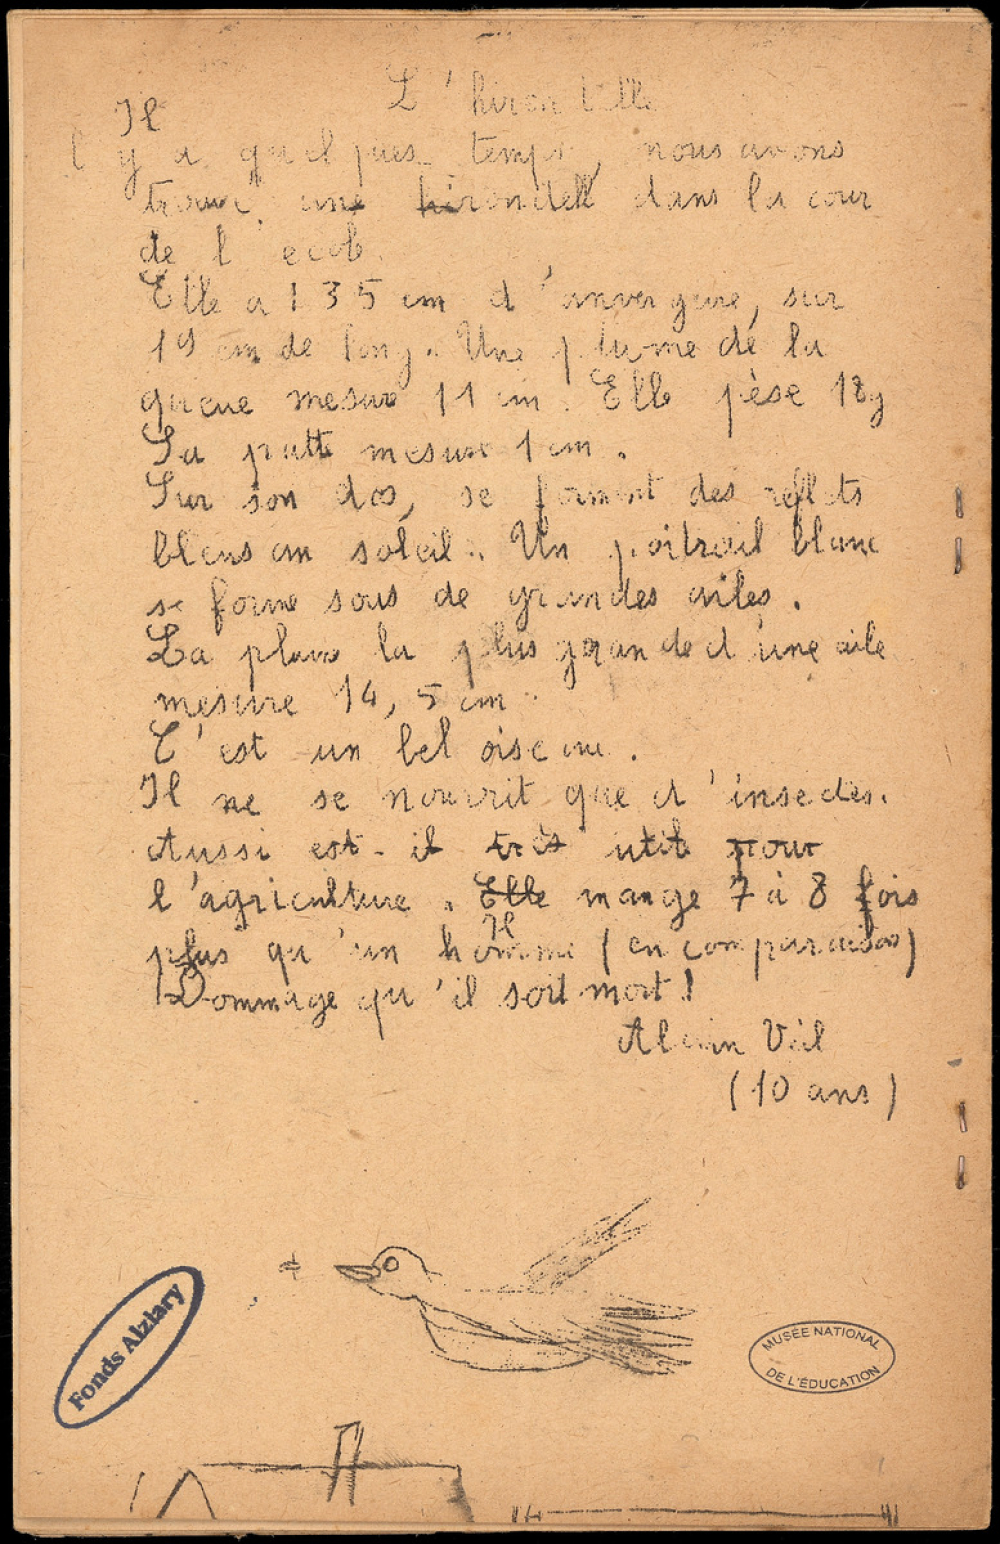 L'hirondelle
Il
y a quelques temps, nous avons
trouvé une hirondelle dans la cour
de l'école.
Elle a 1 35 cm d'anvergure, sur
19 cm de long. Une plume de la
queue mesure 11 cm. Elle pèse 18g
Sa patte mesure 1 cm.
Sur son dos, se forment des reflets
bleus au soleil. Un poitrail blanc
se forme sous de grandes ailes.
La plume la plus grande d'une aile
mesure 14,5 cm.
C'est un bel oiseau.
Il ne se nourrit que d'insectes.
Aussi est-il très utile pour
l'agriculture. Elle mange 7 à 8 fois
Il
plus qu'un homme (en comparaison)
Dommage qu'il soit mort!
Alain
(10 ans)
Fonds Alziary
MUSÉE NATIONAL
DE L'ÉDUCATION